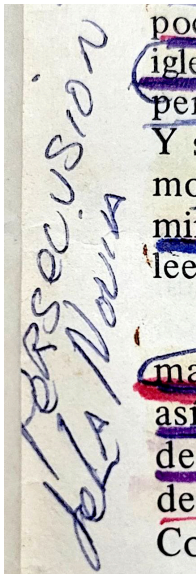 PERSECUSION
DE LA NOVIA
igle
Y s
mo
lee
ma
asi
de
de
Co